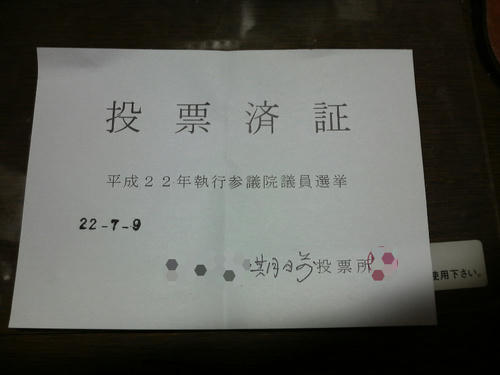 投票済証
平成22年執行参議院議員選挙
22-7-9
期日前投票所
使用下さい。